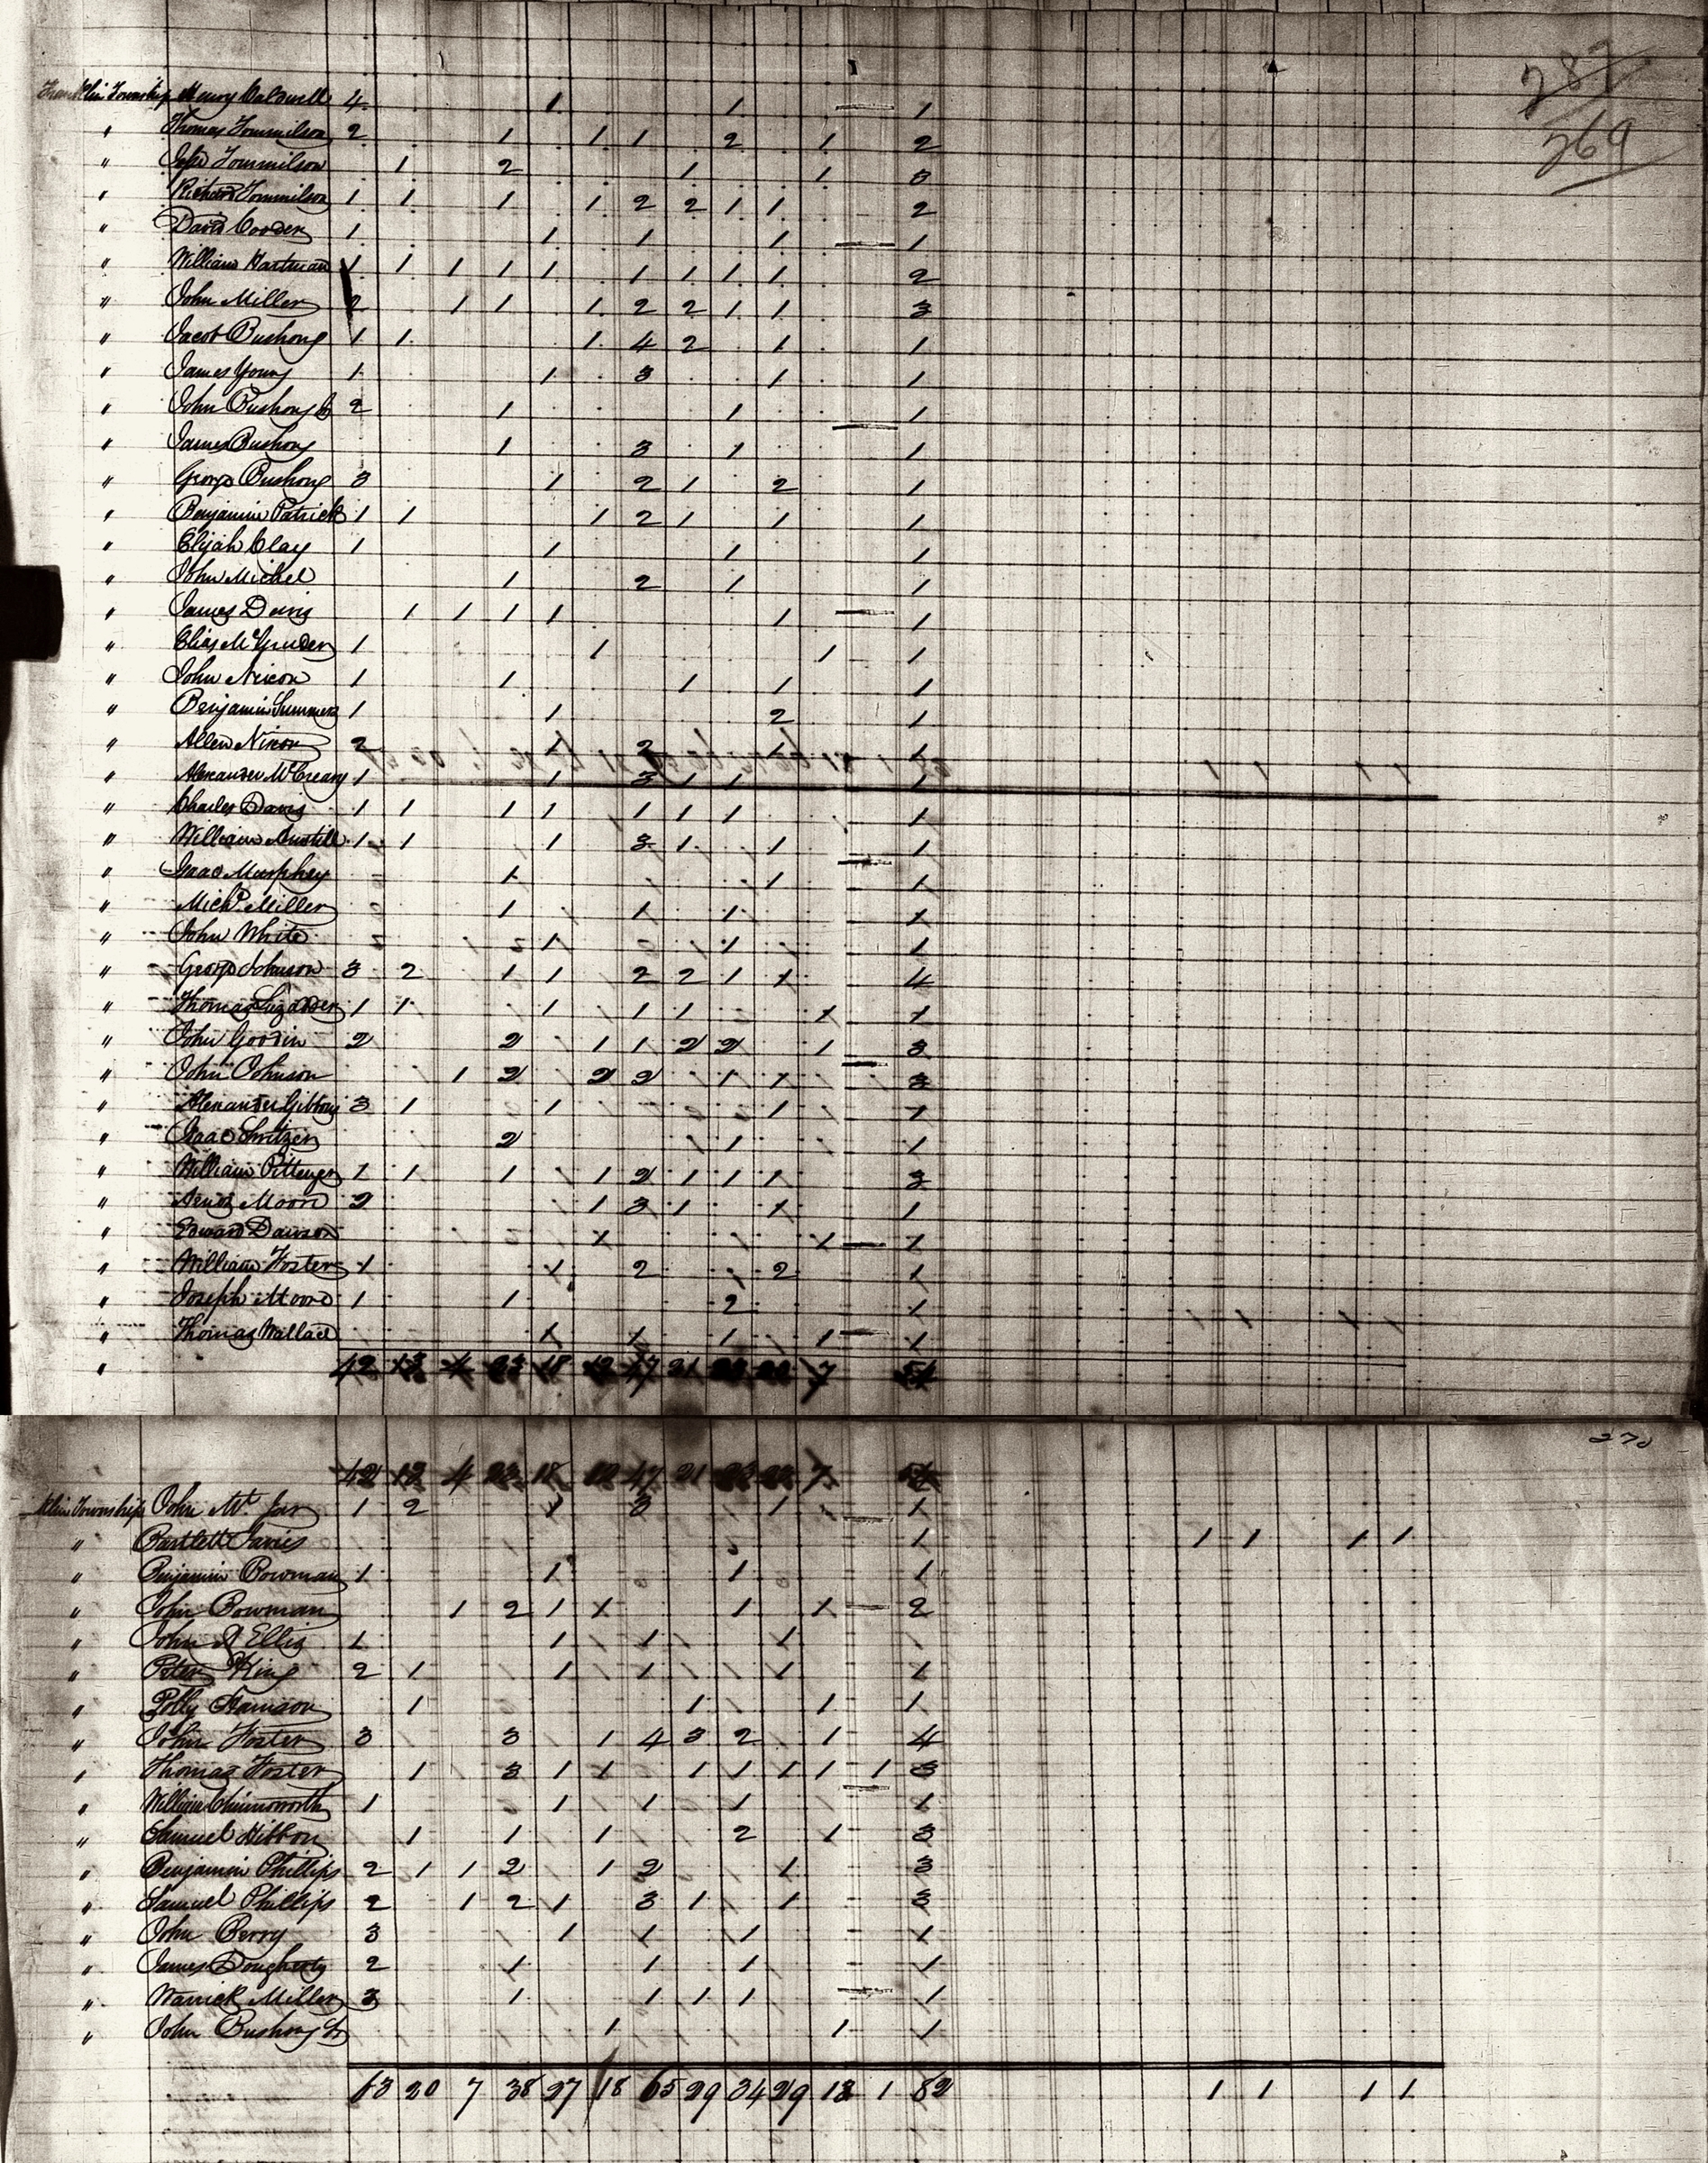 287
269
Franklin Township Henry Caldwell 4 1 1 1
" Thomas Tommilson 2 1 1 1 2 1 2
" John Tommilson 1 2 1 1 3
" Richard Tommilson 1 1 1 1 2 2 1 1 2
" David 1 1 1 1 1
" William Hartman 1 1 1 1 1 1 1 1 1 2
" John Miller 2 1 1 1 2 2 1 1 3
" Jacob Bushong 1 1 1 4 2 1 1
" James Young 1 1 3 1 1
" John Bushong 2 1 1 1
" James Bushong 1 3 1 1
" George Bushong 3 1 2 1 2 1
" Benjamin Patrick 1 1 1 2 1 1 1
" Elijah Clay 1 1 1 1
" John Michel 1 2 1 1
" James Davis 1 1 1 1 1 1
" Elias McGruder 1 1 1 1
" John Nixon 1 1 1 1 1
" Benjamin Summers 1 1 2 1
" Allen Nixon 2 1 2 1 1
" Alexander McCreary 1 1 3 1 1 1
" Charles Davis 1 1 1 1 1 1 1 1
" William Austill 1 1 1 3 1 1 1
" Isaac Murphey 1 1 1
" Michl Miller 1 1 1 1
" John White 1 1 1
" George Johnson 3 2 1 1 2 2 1 1 4
" Thomas 1 1 1 1 1 1 1
" John Goodin 2 2 1 1 2 2 1 3
" John Johnson 1 2 2 2 1 1 3
" Alexander Gibbons 3 1 1 1 1
" Isaac 2 1 1
" William Pittenger 1 1 1 1 2 1 1 1 3
" Moore 2 1 3 1 1 1
" Edward Dawson 1 1 1
" William Foster 1 1 2 2 1
" Joseph Moore 1 1 2 1
" Thomas Wallace 1 1 1 1 1
" 42 4 18 12 47 21 7
270
42 4 18 12 47 21 7
Township John 1 2 1 3 1 1
" Bartlett 1 1 1 1 1
" Benjamin Bowman 1 1 1 1
" John Bowman 1 2 1 1 1 1 2
" John Ellis 1 1 1 1
" Peter King 2 1 1 1 1 1
" Polly 1 1 1 1
" John Foster 3 3 1 4 3 2 1 4
" Thomas Foster 1 3 1 1 1 1 1 1 1 3
" William Chinoworth 1 1 1 1 1
" Samuel 1 1 1 2 1 3
" Benjamin Phillips 2 1 1 2 1 2 1 3
" Samuel Phillips 2 1 2 1 3 1 1 3
" John Berry 3 1 1 1 1
" James Dougherty 2 1 1 1 1
" Warrick Miller 3 1 1 1 1 1
" John Bushong 1 1 1
63 20 7 38 27 18 65 29 34 29 12 1 82 1 1 1 1